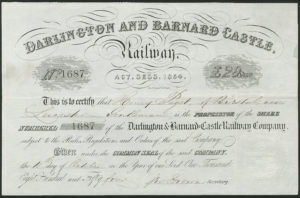 DARLINGTON AND BARNARD CASTLE
Railway.
Nº 1687 £25
ACT, SESS. 1854.
This is to certify that Henry of
Gentleman is the PROPRIETOR of the SHARE
NUMBERED 1687 of the Darlington & Barnard-Castle Railway Company,
subject to the Rules, Regulations and Orders of the said Company.
Given under the COMMON SEAL of the said COMPANY,
the day of October in the Year of our Lord One Thousand
Eight Hundred and Fifty four
Secretary